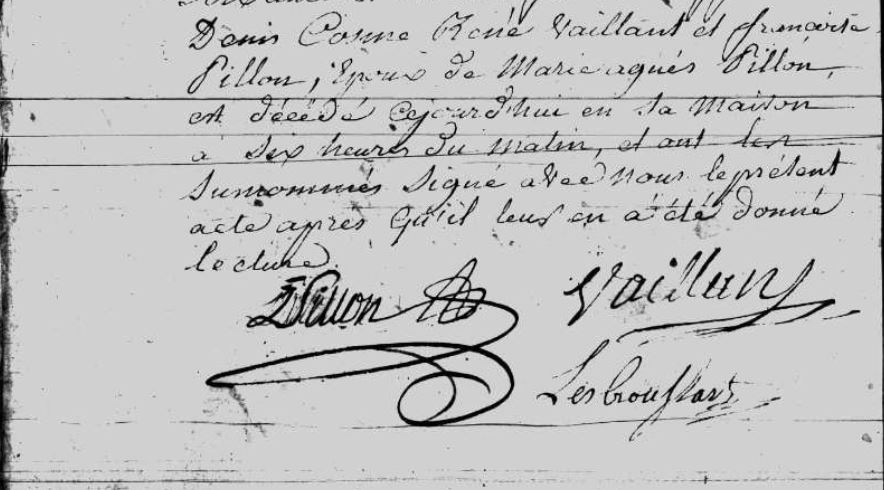 Denis Cosme René Vaillant et françoise
Pillon, Epoux de Marie agnés Pillon,
est décédé cejourd'hui en sa maison
a six heures du matin, et ont les
surnommés signé avec nous le présent
acte apres qu'il leur en a été donné
lecture.
Pillon Vaillant
Lesbroussart